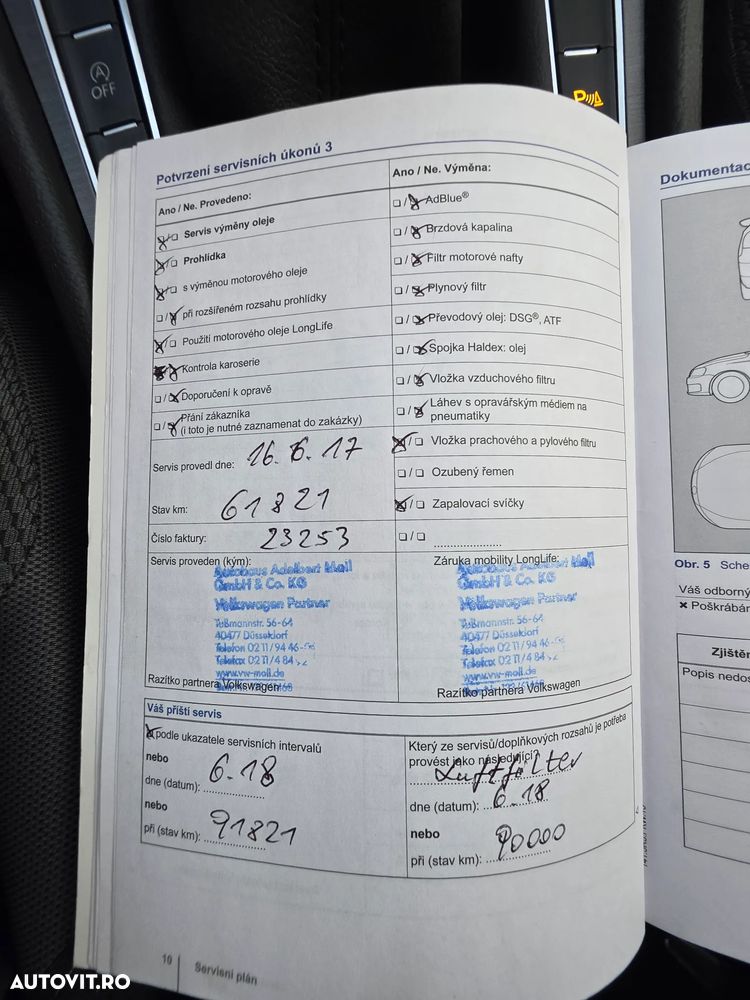 OFF
P
Potvrzení servisních úkonů 3
Ano / Ne. Provedeno:
Servis výměny oleje
Prohlídka
s výměnou motorového oleje
při rozšířeném rozsahu prohlídky
Použití motorového oleje LongLife
Kontrola karoserie
Doporučení k opravě
Přání zákazníka
(i toto je nutné zaznamenat do zakázky)
Servis provedl dne: 16.6.17
Stav km: 61821
Číslo faktury: 23253
Ano / Ne. Výměna:
AdBlue®
Brzdová kapalina
Filtr motorové nafty
Plynový filtr
Převodový olej: DSG®, ATF
Spojka Haldex: olej
Vložka vzduchového filtru
Láhev s opravářským médiem na
pneumatiky
Vložka prachového a pylového filtru
Ozubený řemen
Zapalovací svíčky
Servis proveden (kým):
Autohaus Adelbert Moll
GmbH & Co. KG
Volkswagen Partner
Roßmannstr. 56-64
40477 Düsseldorf
Telefon 02 11/94 46-
Telefax 02 11/4 84
www.vw-moll.de
Razítko partnera Volkswagen
Záruka mobility LongLife:
Autohaus Adelbert Moll
GmbH & Co. KG
Volkswagen Partner
Roßmannstr. 56-64
40477 Düsseldorf
Telefon 02 11/94 46-
Telefax 02 11/4 84
www.vw-moll.de
Razítko partnera Volkswagen
Váš příští servis
podle ukazatele servisních intervalů
nebo
dne (datum): 6.18
nebo
při (stav km): 91821
Který ze servisů/doplňkových rozsahů je potřeba
provést jako následující?
Luftfilter
dne (datum): 6.18
nebo
při (stav km): 90000
10 Servisní plán
Dokumentac
Obr. 5 Sche
Váš odborný
× Poškrábár
Zjiště
Popis nedos
AUTOVIT.RO